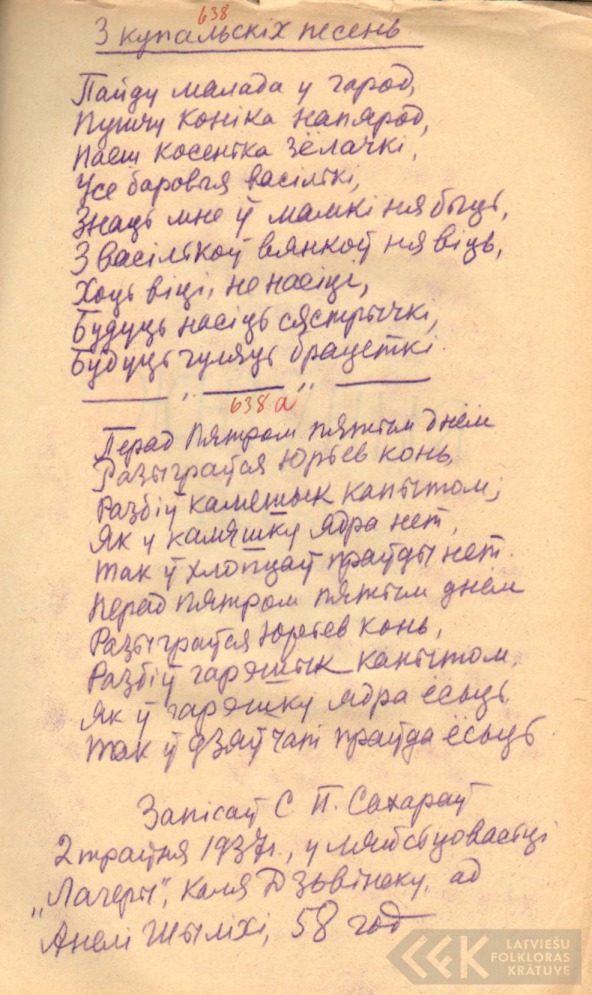 638
З купальскіх песень
Пайду малада у гарод,
Пушчу коніка напярод,
Паеш косентка зёлачкі,
Усе баровыя васількі,
Знаць мне ў мамкі ня быць,
З васількоў вянкоў ня віць,
Хоць віці, не насіці,
Будуць насіць сястрычкі,
Будуць гуляць брацеткі.
638 а
Перад Пятром пятым днем
Разыграўся Юрьев конь,
Разбіў камешык капытом,
Як у камяшку ядра нет,
Так ў хлопцаў праўды нет.
Перад Пятром пятым днем
Разыграўся Юрьев конь,
Разбіў гарэшык капытом.
Як ў гарэшку ядра ёсьць
Так ў дзяўчат праўда ёсьць.
Запісаў С. П. Сахараў
2 траўня 1937г., у мяйсцовасці
„Лагеры", каля Дзьвінску, ад
Анелі Шыліхі, 58 год
LATVIEŠU
FOLKLORAS
KRĀTUVE